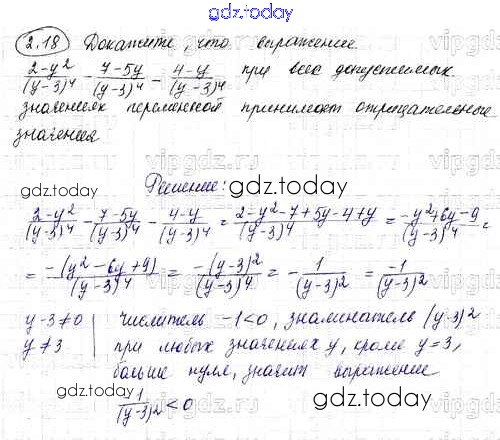 gdz.today
2.18 Докажите, что выражение
(2-y²)/(y-3)⁴ - (7-5y)/(y-3)⁴ - (4-y)/(y-3)⁴ при всех допустимых
значениях переменной принимает отрицательные
значения
Решение:
gdz.today gdz.today
(2-y²)/(y-3)⁴ - (7-5y)/(y-3)⁴ - (4-y)/(y-3)⁴ = (2-y²-7+5y-4+y)/(y-3)⁴ = (-y²+6y-9)/(y-3)⁴ =
= -(y²-6y+9)/(y-3)⁴ = -(y-3)²/(y-3)⁴ = -1/(y-3)² = -1/(y-3)²
y-3≠0 | числитель -1<0, знаминатель (y-3)²
y≠3 | при любых значениях y, кроме y=3,
больше нуля, значит выражение
gdz.today gdz.today
1/(y-3)² < 0